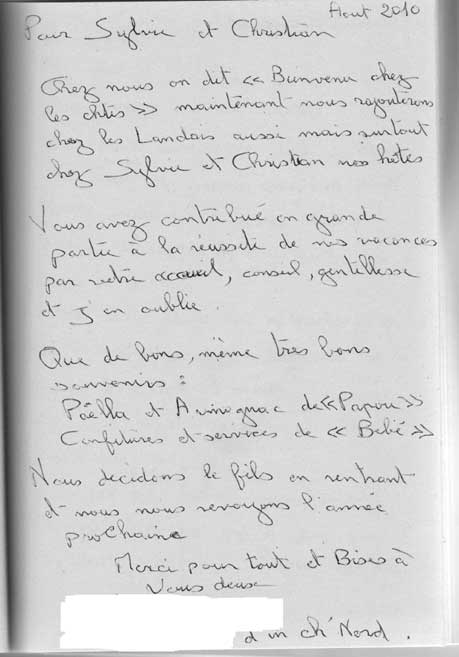 Août 2010
Pour Sylvie et Christian
Chez nous on dit « Bienvenu chez
les chtis » maintenant nous rajouterons
chez les Landais aussi mais surtout
chez Sylvie et Christian nos hôtes
Vous avez contribué en grande
partie à la réussite de nos vacances
par votre accueil, conseil, gentillesse
et j'en oublie.
Que de bons, même très bons
souvenirs :
Paëlla et Armagnac de « Papou »
Confitures et services de « Bebé »
Nous decidons le fils en rentrant
et nous nous revoyons l'année
prochaine
Merci pour tout et Bises à
Vous deux
d'un ch' Nord.